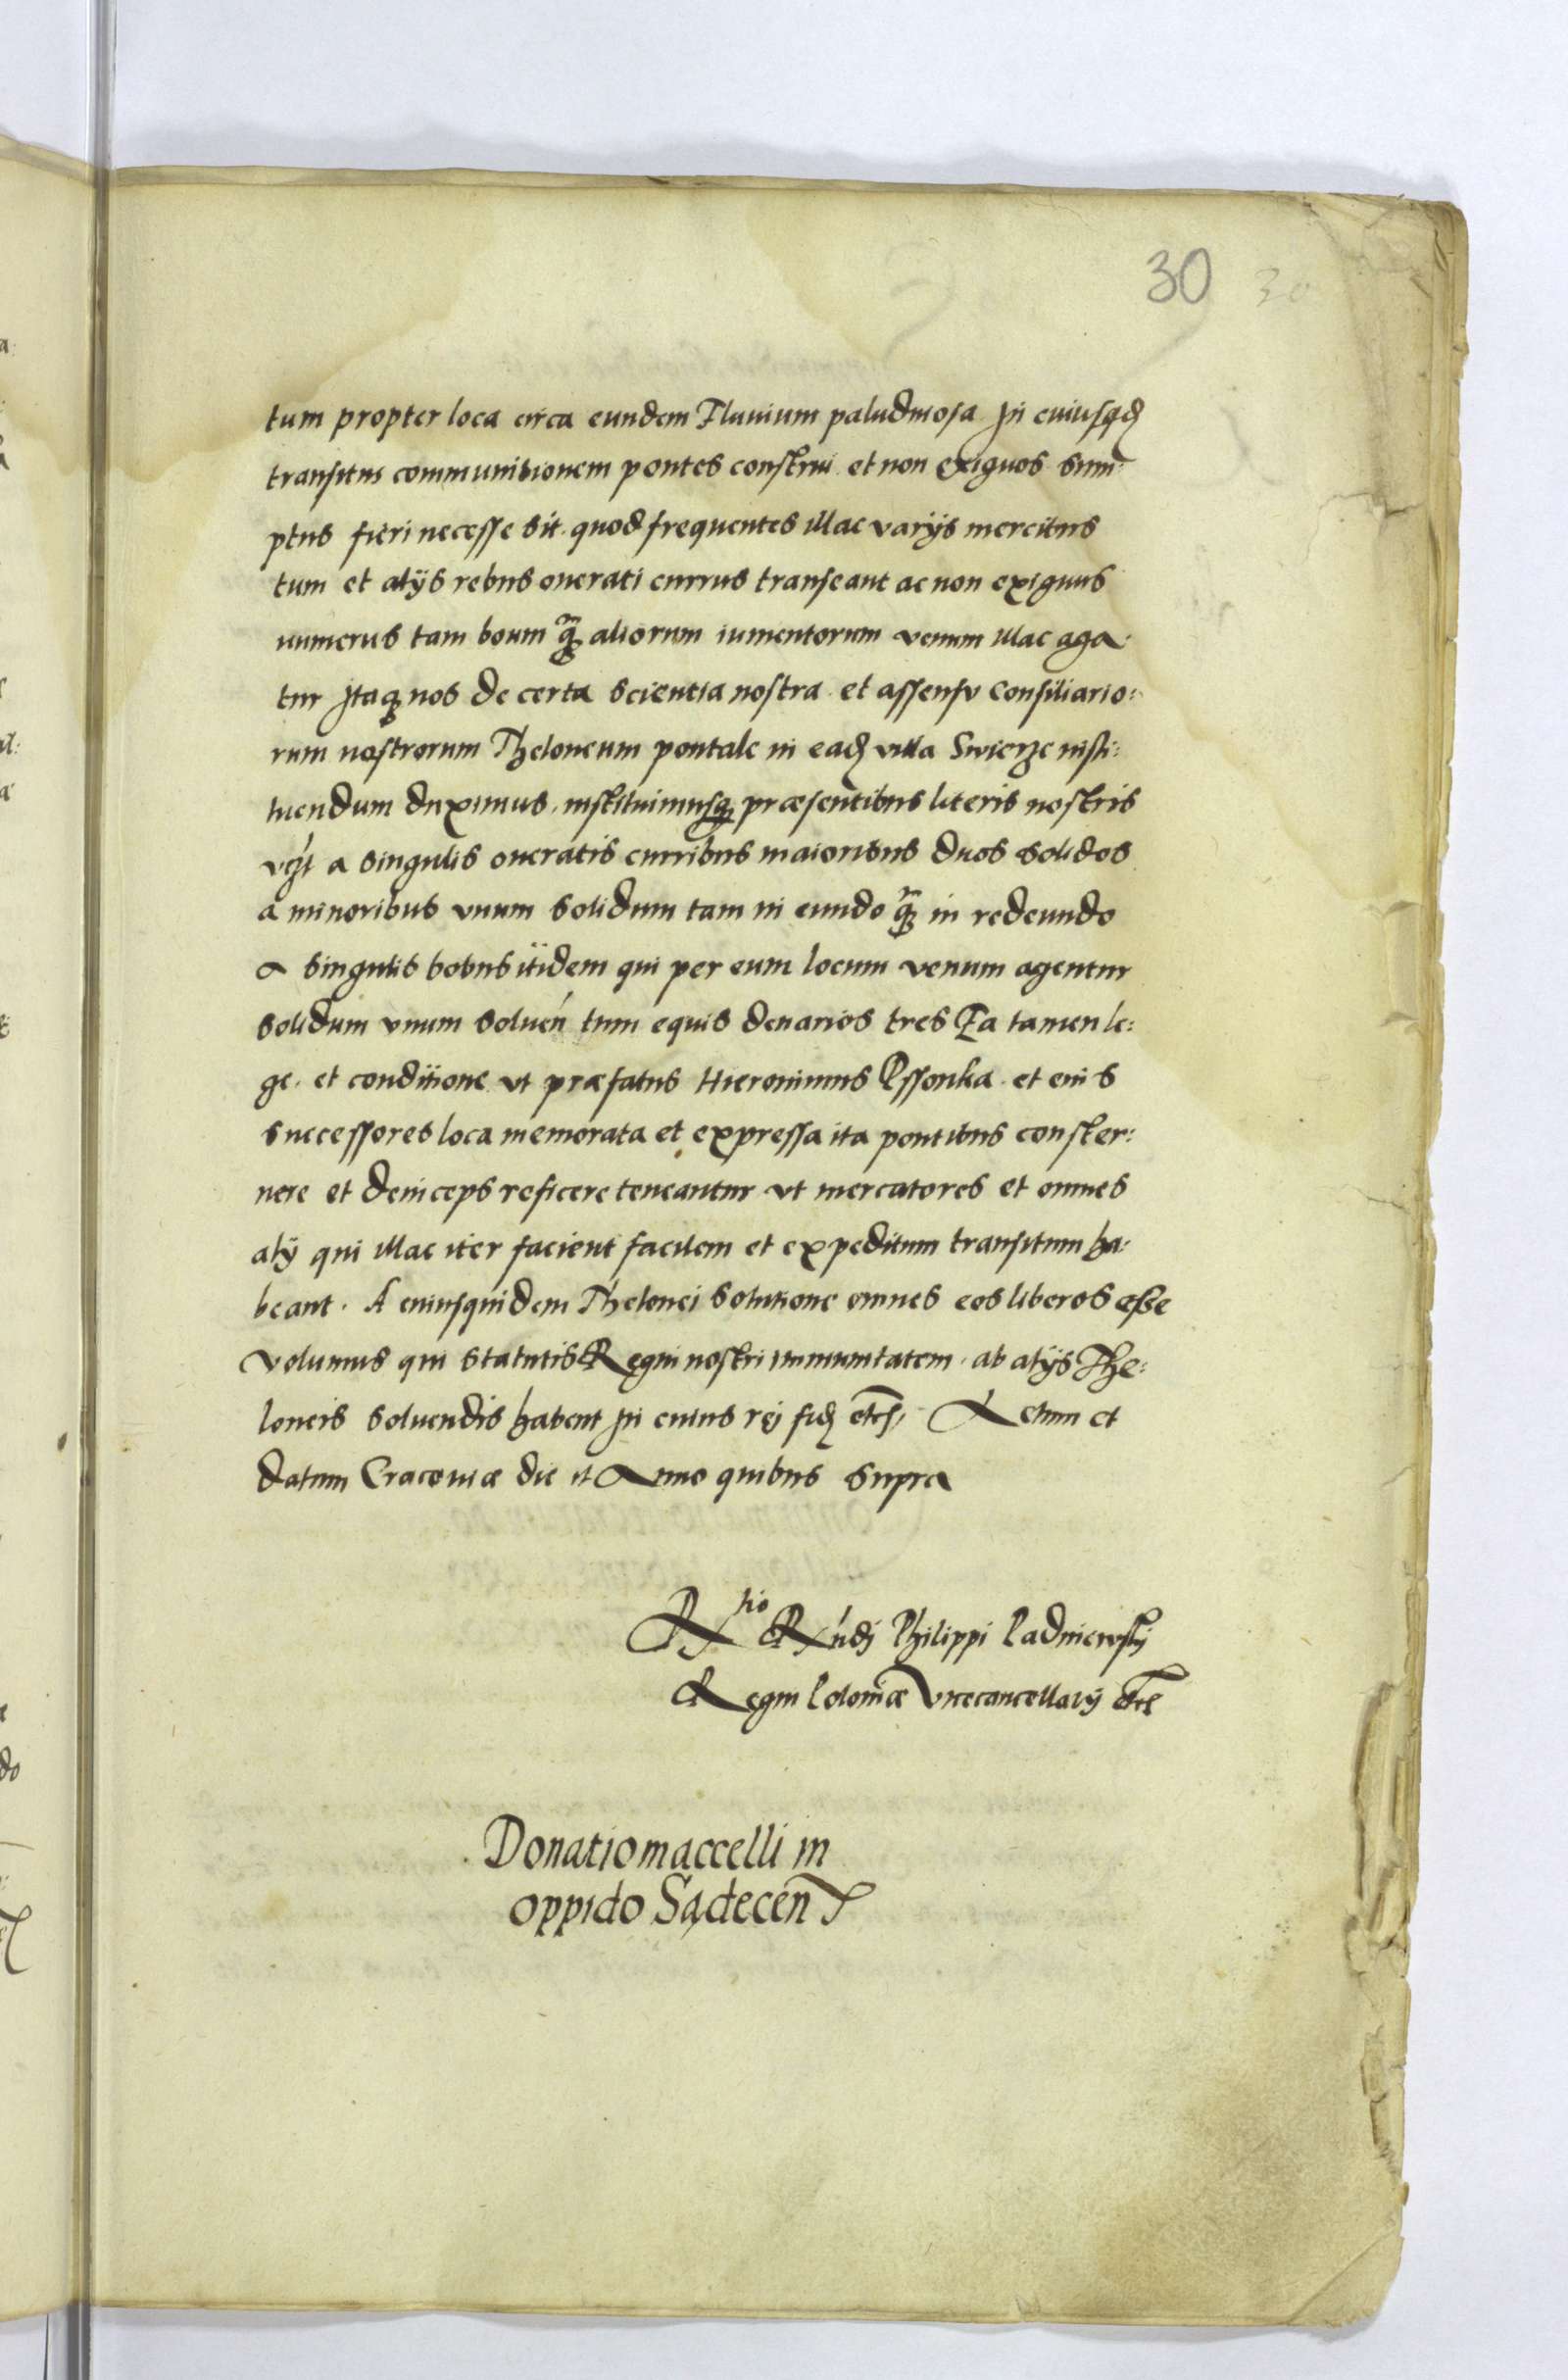 30 30
tum propter loca circa eundem Fluvium paludinosa In cuiusqd
transitus communitionem pontes construi et non exiguos sum:
ptus fieri necesse sit. quod frequentes illac varijs mercibus
tum et alijs rebus onerati currus transeant ac non exiguus
numerus tam boum q̃ aliorum iumentorum venum illac aga:
tur Itaq nos de certa scientia nostra et assensu consiliario:
rum nostrorum Theloneum pontale in ead villa Swierze insti:
tuendum duximus. instituimusq præsentibus literis nostris
a singulis oneratis curribus maioribus duos solidos
a minoribus vnum solidum tam in eundo q̃ in redeundo
a singulis bobus itidem qui per eum locum venum agentur
solidum vnum soluen tum equis denarios tres Ea tamen le:
ge. et conditione vt præfatus Hieronimus Ossonka et eius
successores loca memorata et expressa ita pontibus conster:
nere et deinceps reficere teneantur vt mercatores et omnes
alij qui illac iter facient facilem et expeditum transitum ha:
beant. A cuiusquidem Thelonei solutione omnes eos liberos esse
volumus qui statutis Regni nostri immunitatem. ab alijs The:
loneis soluendis habent In cuius rei fid etc. Actum et
datum Cracoviæ die et Anno quibus supra
Rtio Rndj Philippi Padniewskj
Regni Poloniæ Vicecancellarij etc
Donatio maccelli in
oppido Sądecen